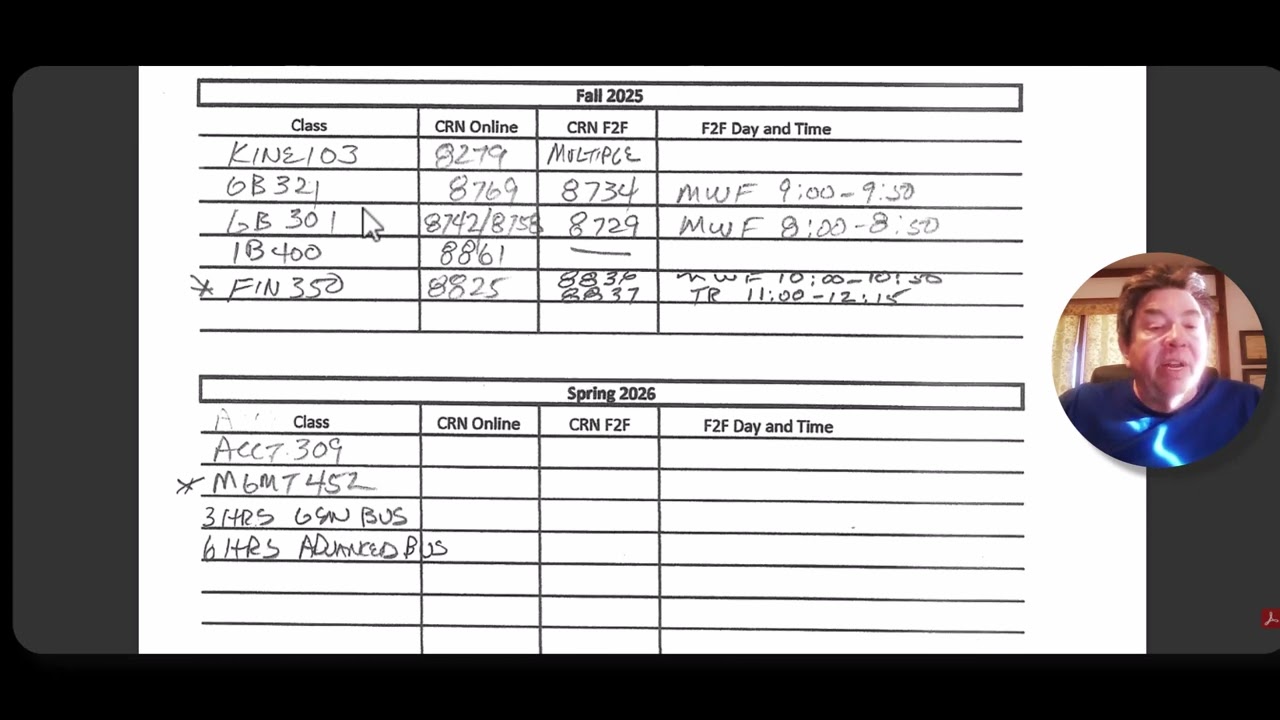 Fall 2025
Class CRN Online CRN F2F F2F Day and Time
KINE103 8279 MULTIPLE
GB 321 8769 8734 MWF 9:00-9:50
GB 301 8742/8758 8729 MWF 8:00-8:50
IB 400 8861 —
* FIN 350 8825 8836 MWF 10:00-10:50
8837 TR 11:00-12:15
Spring 2026
Class CRN Online CRN F2F F2F Day and Time
ACCT 309
* MGMT 452
3 HRS GEN BUS
6 HRS ADVANCED BUS